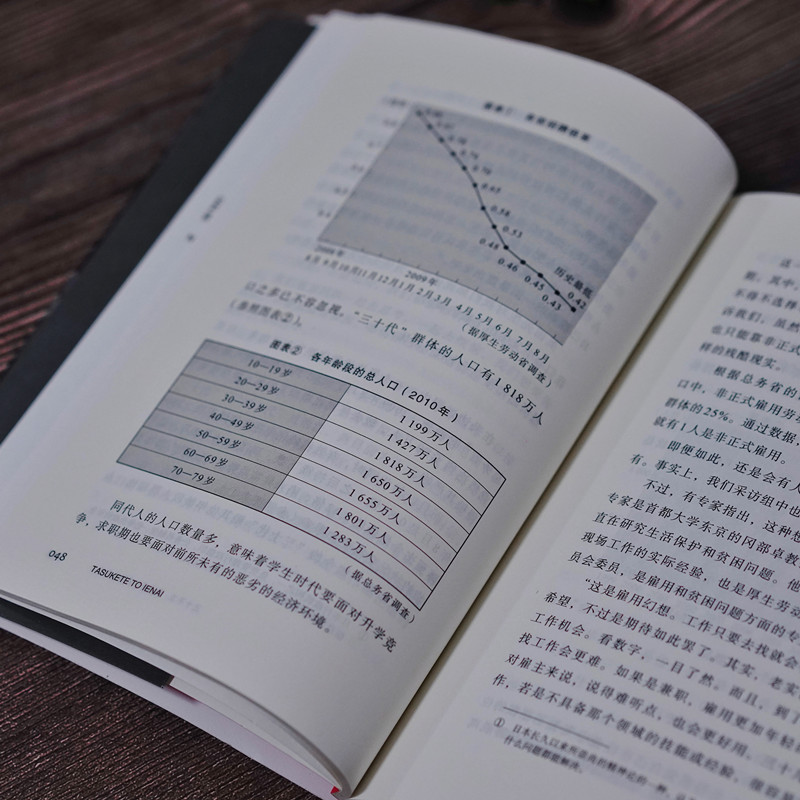 0.65
0.58
0.53
0.48
0.46
0.45
0.43
0.42
历史最低
2009年
8月9月10月11月12月1月2月3月 4月5月6月 7月8月
(据厚生劳动省调查)
以之多已不容忽视，“三十代”群体的人口有1 818万人
(参照图表②)。
图表② 各年龄段的总人口(2010年)
10—19岁 1 199万人
20—29岁 1 427万人
30—39岁 1 818万人
40—49岁 1 650万人
50—59岁 1 655万人
60—69岁 1 801万人
70—79岁 1 283万人
(据总务省调查)
同代人的人口数量多，意味着学生时代要面对升学竞
争，求职期也要面对前所未有的恶劣的经济环境。
048
TASUKETE TO IENAI
这一
能，其中，
不得不选择
诉我们，虽然
也只能靠非正式
样的残酷现实。
根据总务省的
口中，非正式雇用劳
群体的25%。通过数据，
就有1人是非正式雇用。
即便如此，还是会有人
有。事实上，我们采访组中也
不过，有专家指出，这种想
专家是首都大学东京的冈部卓教
直在研究生活保护和贫困问题。他
现场工作的实际经验，也是厚生劳动
员会委员，是雇用和贫困问题方面的专
“这是雇用幻想。工作只要去找就会
希望，不过是期待如此罢了。其实，老实
工作机会。看数字，一目了然。而且，到了
找工作会更难。如果是兼职，雇用更加年轻
对雇主来说，说得难听点，也会更好用。三十
作，若是不具备那个领域的技能或经验，很容易
① 日本长久以来所崇尚的精神论的一种，
什么问题都能解决。